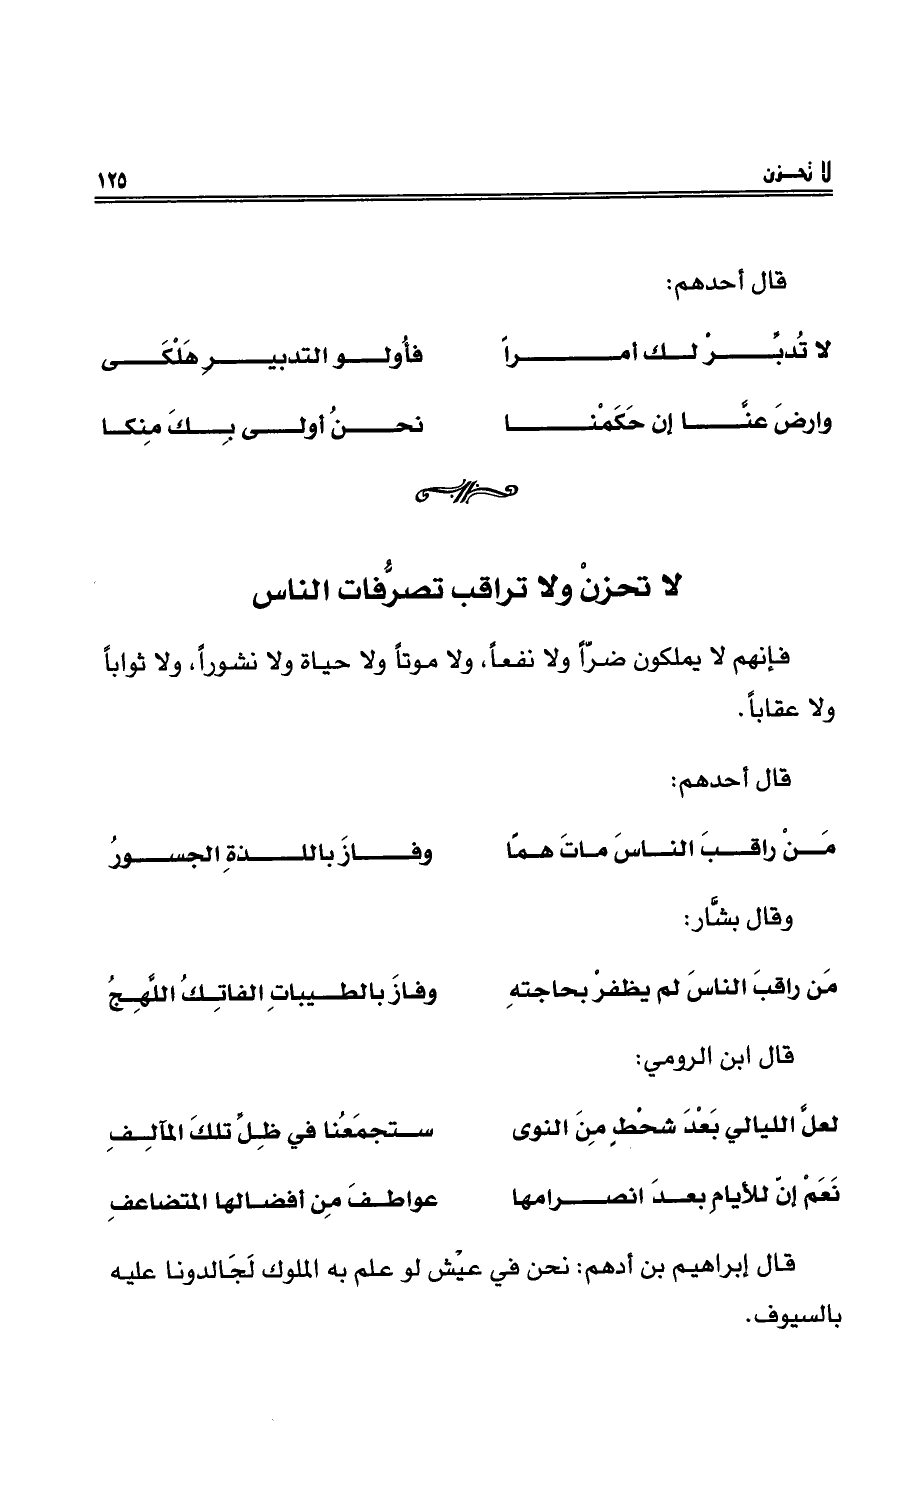 لا تحزن ١٢٥
قال أحدهم:
لا تُدبِّرْ لك أمراً فأُولو التدبيرِ هَلْكَى
وارضَ عنَّا إن حكَمْنا نحنُ أولى بِكَ مِنكا
لا تحزنْ ولا تراقب تصرُّفات الناس
فإنهم لا يملكون ضرّاً ولا نفعاً، ولا موتاً ولا حياة ولا نشوراً، ولا ثواباً
ولا عقاباً.
قال أحدهم:
مَنْ راقبَ الناسَ ماتَ همًا وفازَ باللذةِ الجسورُ
وقال بشَّار:
مَن راقبَ الناسَ لم يظفرْ بحاجتهِ وفازَ بالطيباتِ الفاتِكُ اللَّهِجُ
قال ابن الرومي:
لعلَّ الليالي بَعْدَ شحْطٍ مِنَ النوى ستجمَعُنا في ظِلِّ تلكَ المآلِفِ
نَعَمْ إنّ للأيامِ بعدَ انصرامها عواطفَ مِن أفضالها المتضاعفِ
قال إبراهيم بن أدهم: نحن في عيْش لو علم به الملوك لَجَالدونا عليه
بالسيوف.